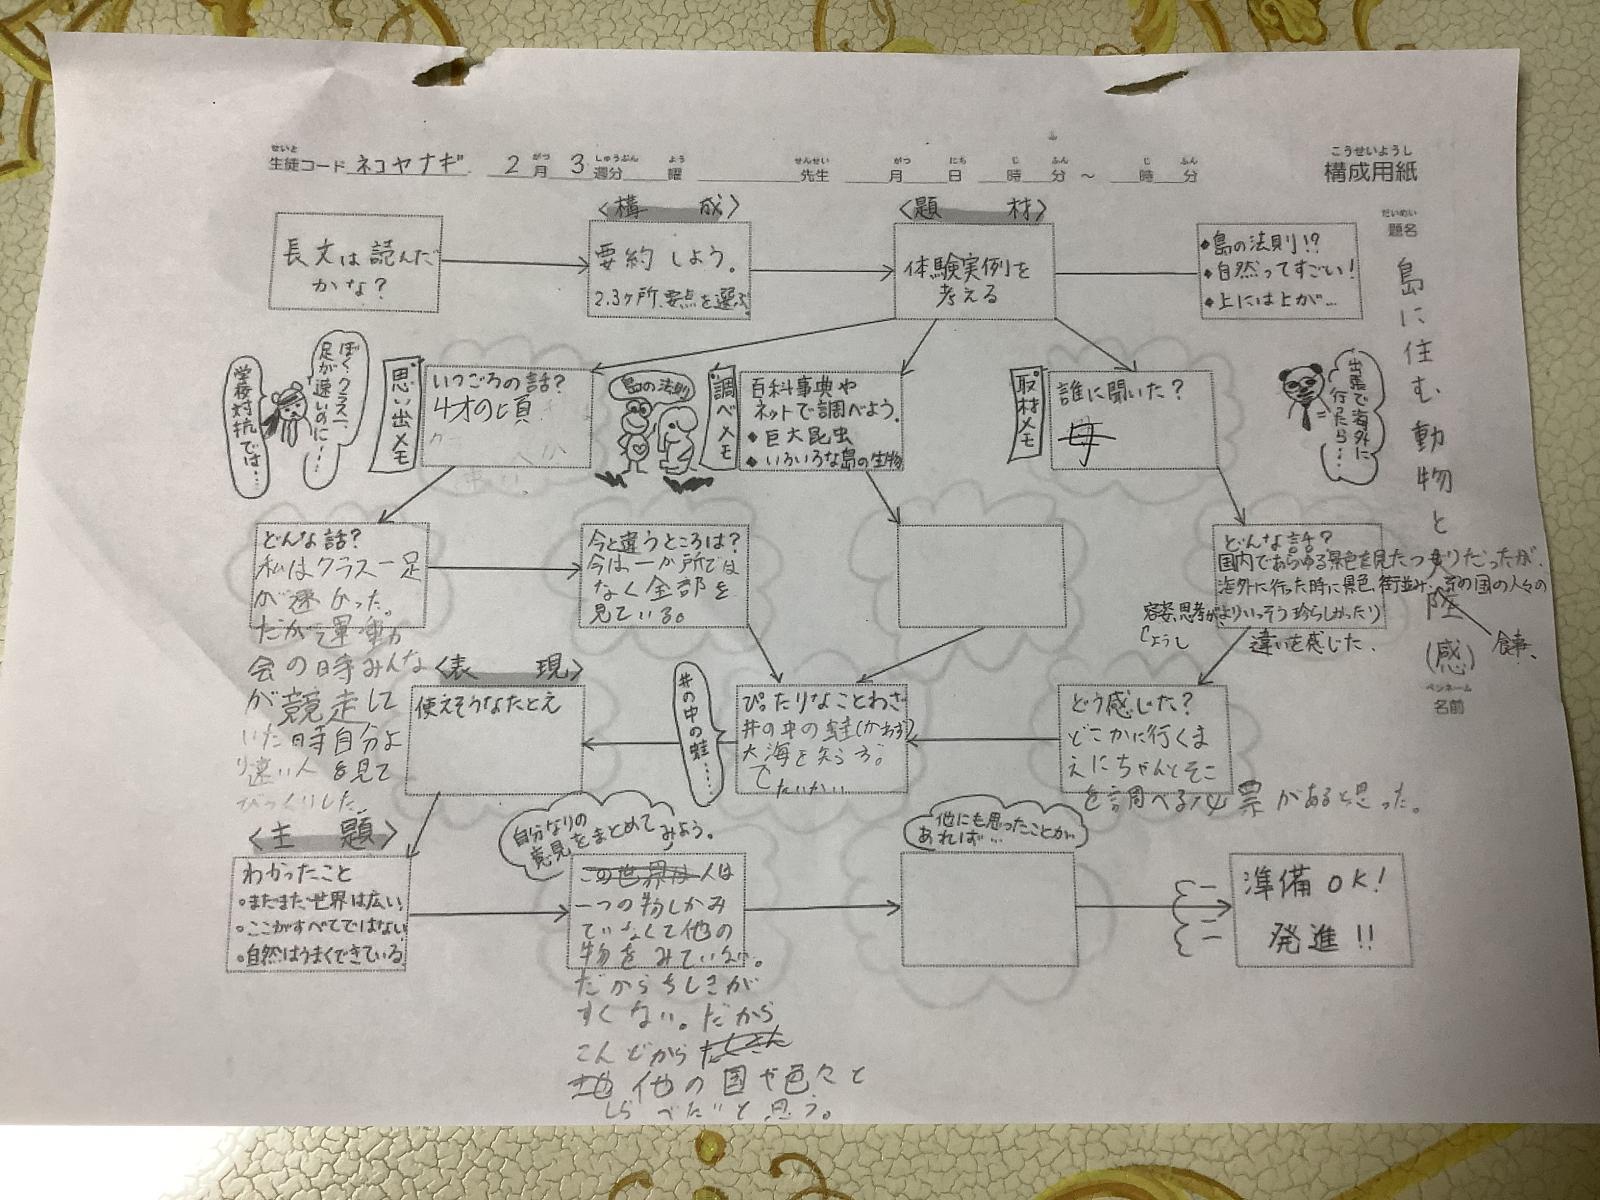 せいと
生徒コード ネコヤナギ 2月 3週分 曜 先生 月 日 時 分 ～ 時 分
がつ しゅうぶん よう せんせい がつ にち じ ふん じ ふん
こうせいようし
構成用紙
だいめい
題名
島に住む動物と
陸
(感)
ペンネーム
名前
長文は読んだ
かな？
〈構 成〉
要約しよう。
2.3ヶ所、要点を選ぶ。
〈題 材〉
体験実例を
考える
◆島の法則!?
◆自然ってすごい!
◆上には上が…
ぼく、クラス一、
足が速いのに……
学校対抗では……
思い出メモ
いつごろの話？
4才の頃
島の法則
調べメモ
百科事典や
ネットで調べよう。
◆巨大昆虫
◆いろいろな島の生物
取材メモ
誰に聞いた？
母
出張で海外に
行ったら……
どんな話？
私はクラス一足
が速かった。
だが運動
会の時みんな
が競走して
いた時自分よ
り速い人を見て
びっくりした。
今と違うところは？
今は一か所では
なく全部を
見ている。
どんな話？
国内であらゆる景色を見たつもりだったが、
海外に行った時に景色、街並み、その国の人々の
容姿、思考がよりいっそう珍らしかったり
ようし
違いを感じた。
食事、
〈表 現〉
使えそうなたとえ
井の中の蛙……
ぴったりなことわざ
井の中の蛙(かわず)
大海を知らず。
たいかい
どう感じた？
どこかに行くま
えにちゃんとそこ
を調べる必要があると思った。
〈主 題〉
わかったこと
・またまた世界は広い
・ここがすべてではない
・自然はうまくできている
自分なりの
意見をまとめて
みよう。
この世界は人は
一つの物しかみ
ていなくて他の
物をみていない。
だからちしきが
すくない。だから
こんどから
他の国や色々と
しらべたいと思う。
他にも思ったことが
あれば…
準備OK!
発進!!